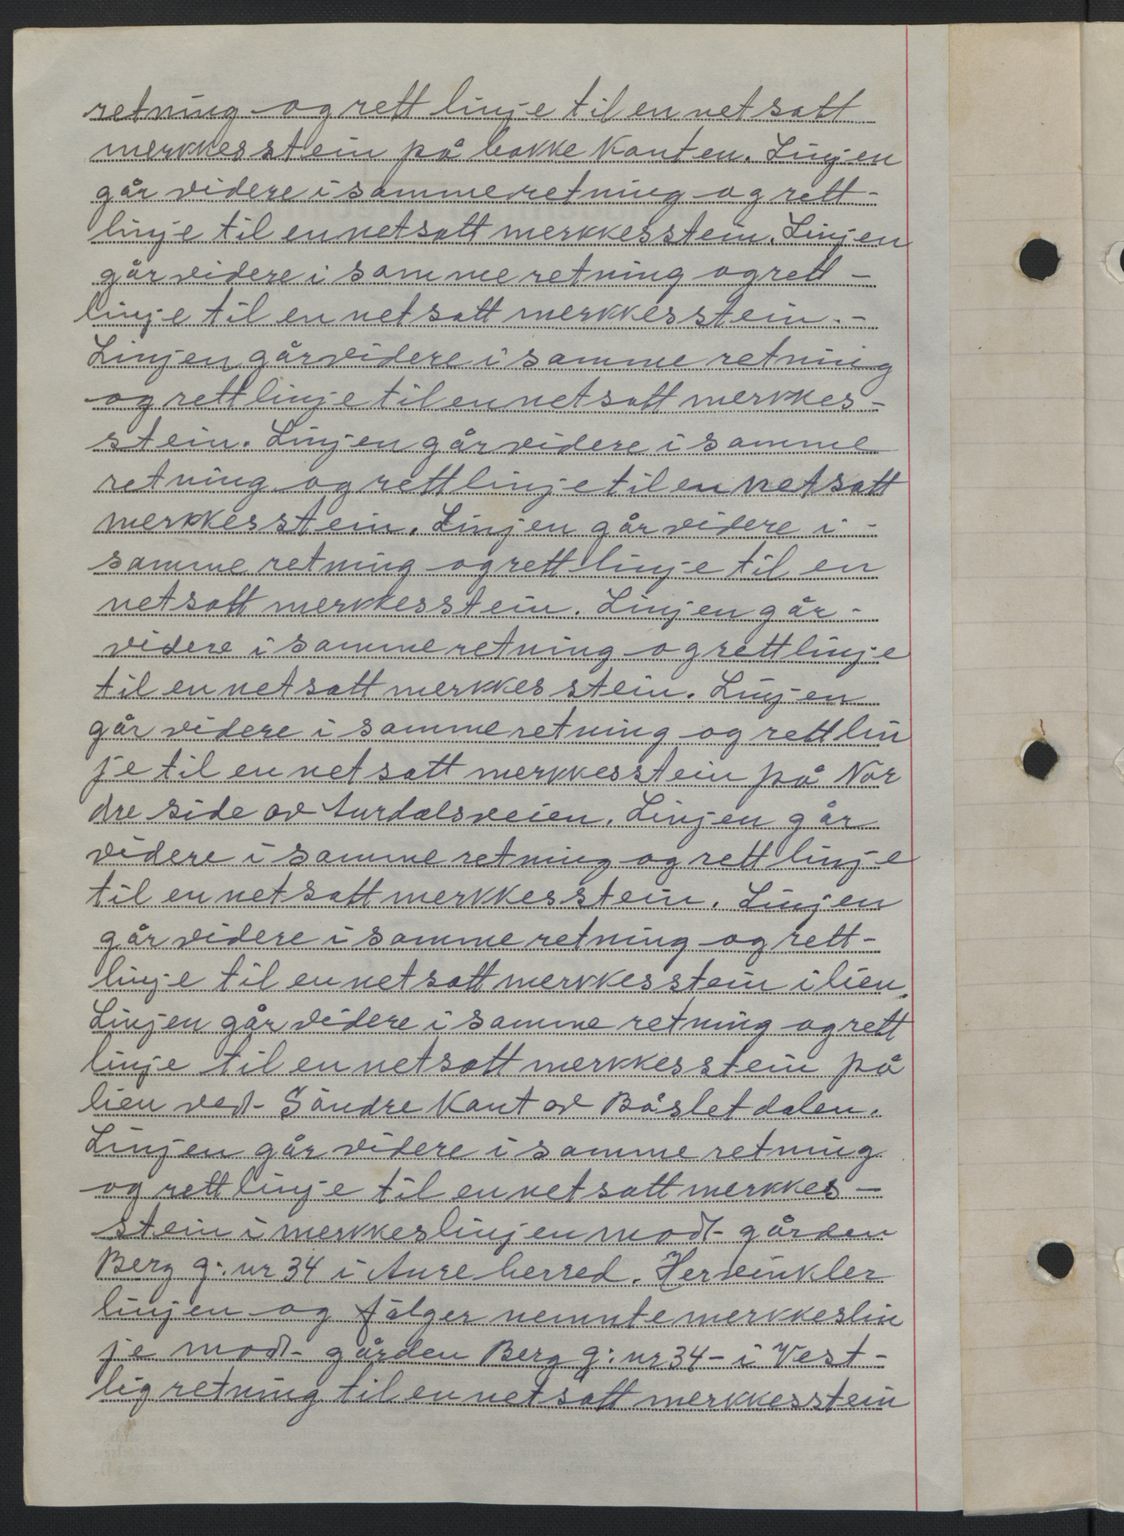 retning og rett linje til en netsatt
merkkesstein på bakke kanten. Linjen
går videre i samme retning og rett-
linje til en netsatt merkkesstein. Linjen
går videre i samme retning og rett-
linje til en netsatt merkkesstein.-
Linjen går videre i samme retning
og rett linje til en netsatt merkkes-
stein. Linjen går videre i samme
retning og rett linje til en netsatt
merkkesstein. Linjen går videre i-
samme retning og rett linje til en
netsatt merkkesstein. Linjen går-
videre i samme retning og rett linje
til en netsatt merkkesstein. Linjen
går videre i samme retning og rett lin
je til en netsatt merkkesstein på Nor
dre side av Aurdalsveien. Linjen går
videre i samme retning og rett linje
til en netsatt merkkesstein. Linjen
går videre i samme retning og rett-
linje til en netsatt merkkesstein i lien.
Linjen går videre i samme retning og rett
linje til en netsatt merkkesstein på
lien ved Söndre Kant av Båsletdalen.
Linjen går videre i samme retning
og rett linje til en netsatt merkkes-
stein i merkkeslinjen mod- gården
Berg g:nr 34 i Aure herred. Her vinkler
linjen og fölger nemnte merkkeslin
je mod- gården Berg g:nr 34- i Vest-
lig retning til en netsatt merkkesstein